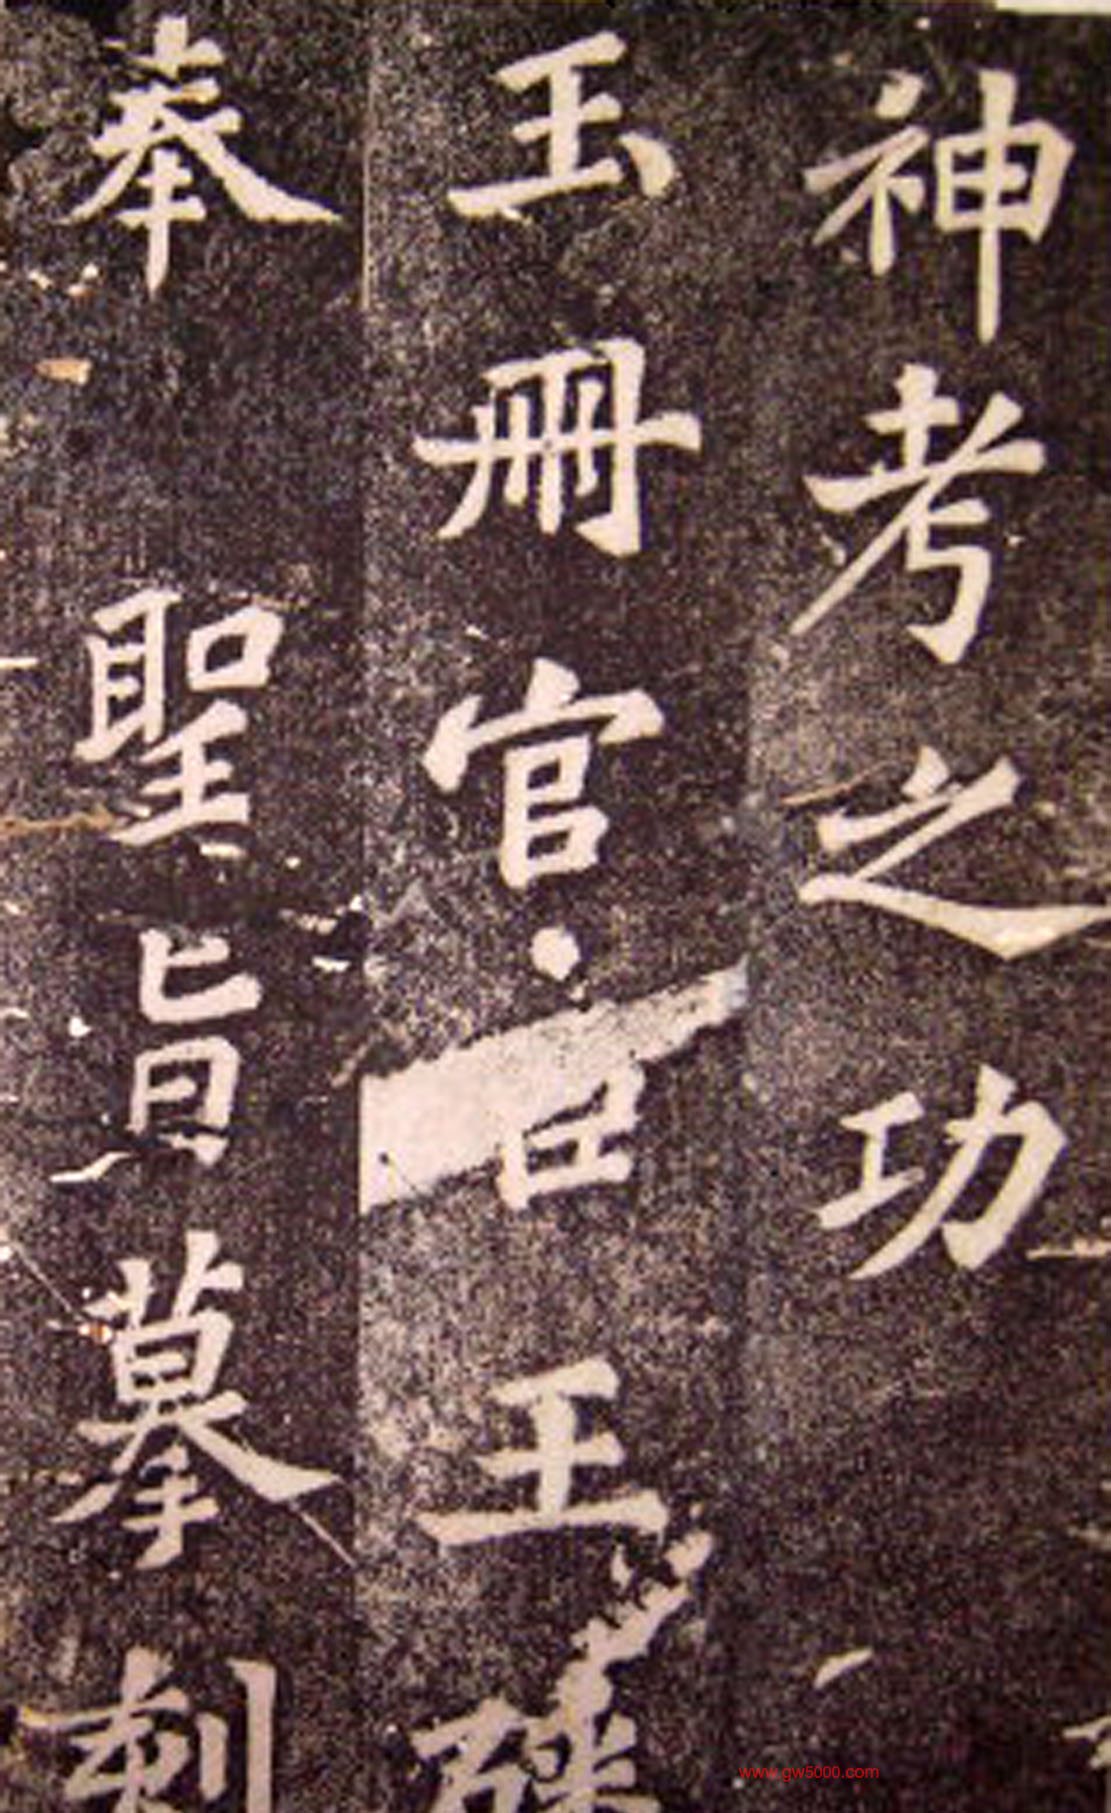 神考之功
玉冊官臣王磻
奉聖旨摹刻
www.gw5000.com